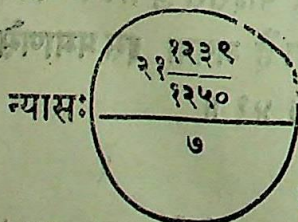 न्यासः
२१ १२३९
१२५०
७